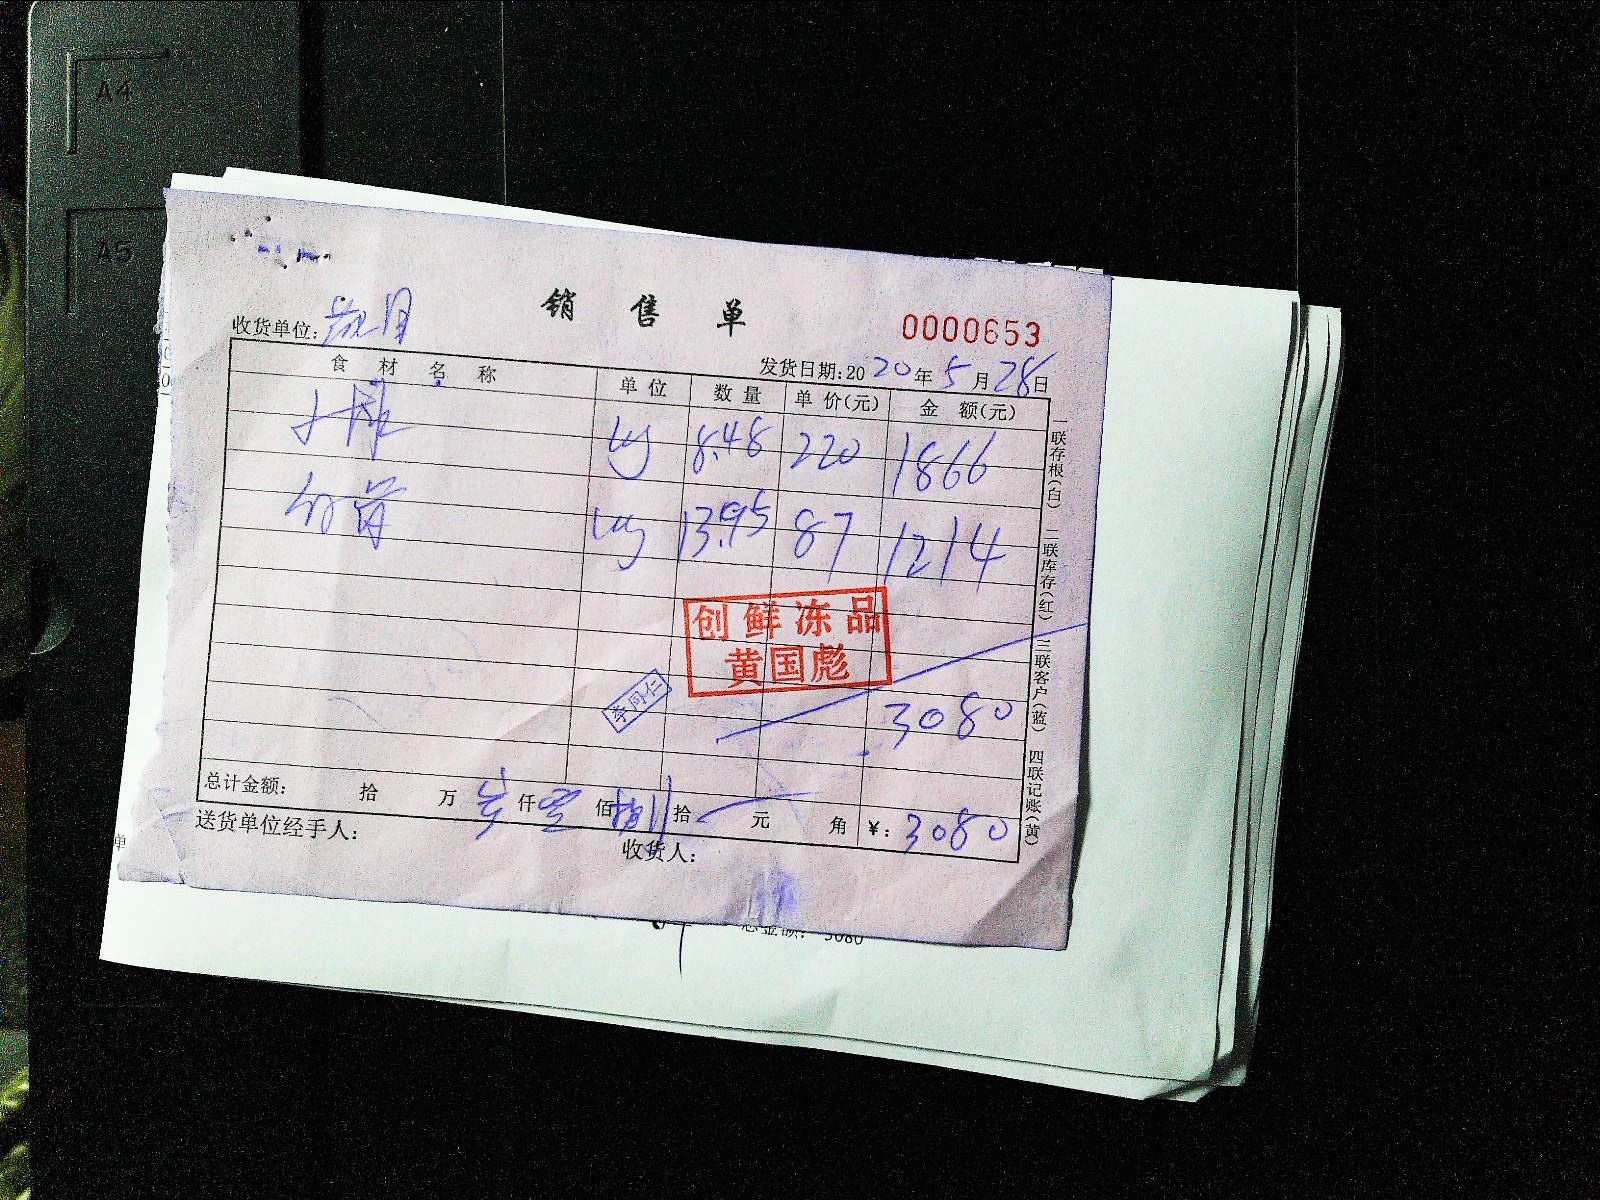 A4
A5
销售单
0000653
收货单位:
发货日期:2020年5月28日
食材名称 单位 数量 单价(元) 金额(元)
kg 8.48 220 1866
kg 13.95 87 1214
创鲜冻品
黄国彪
李同仁
3080
总计金额: 拾 万 叁仟零佰捌拾 元 角 ¥:3080
送货单位经手人: 收货人:
一联存根(白) 二联库存(红) 三联客户(蓝) 四联记账(黄)
单
总金额: 3080